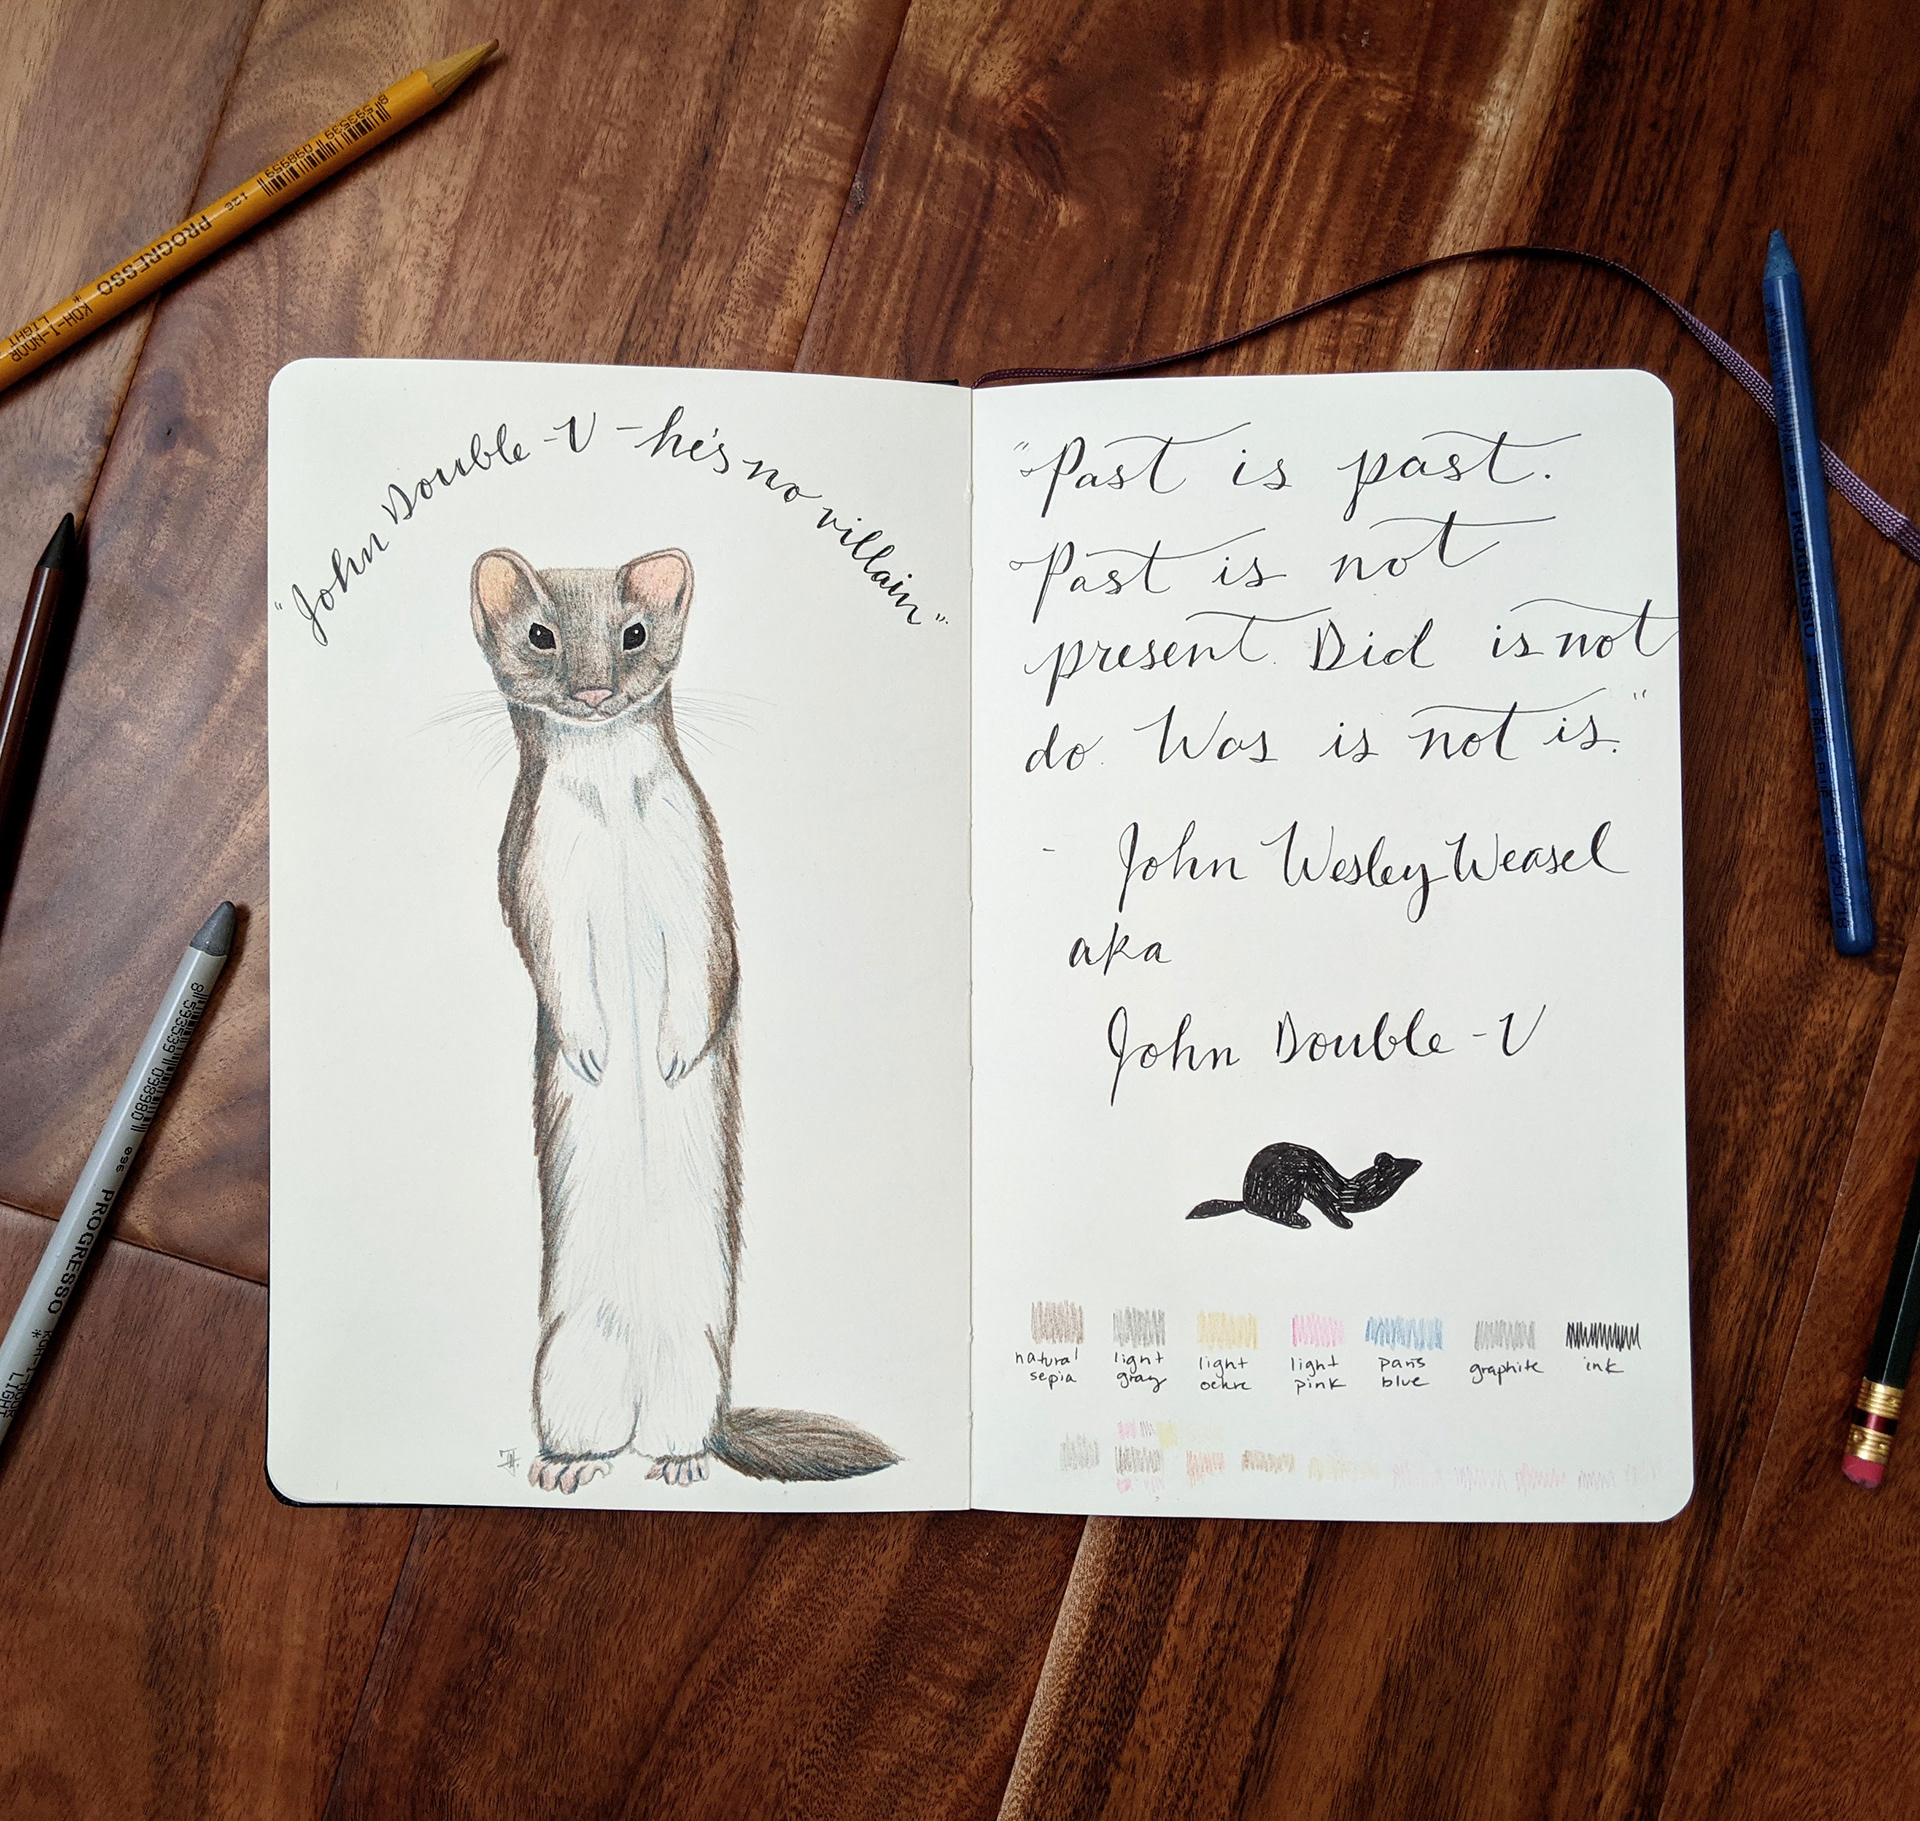 "John Double-V - he's no villain"
"Past is past.
Past is not
present. Did is not
do. Was is not is."
- John Wesley Weasel
aka
John Double-V
natural
sepia
light
gray
light
ochre
light
pink
paris
blue
graphite
ink
8 593539 098959
126 PROGRESSO
KOH-I-NOOR
LIGHT
8 593539 098980
096 PROGRESSO
KOH-I-NOOR
LIGHT
PROGRESSO